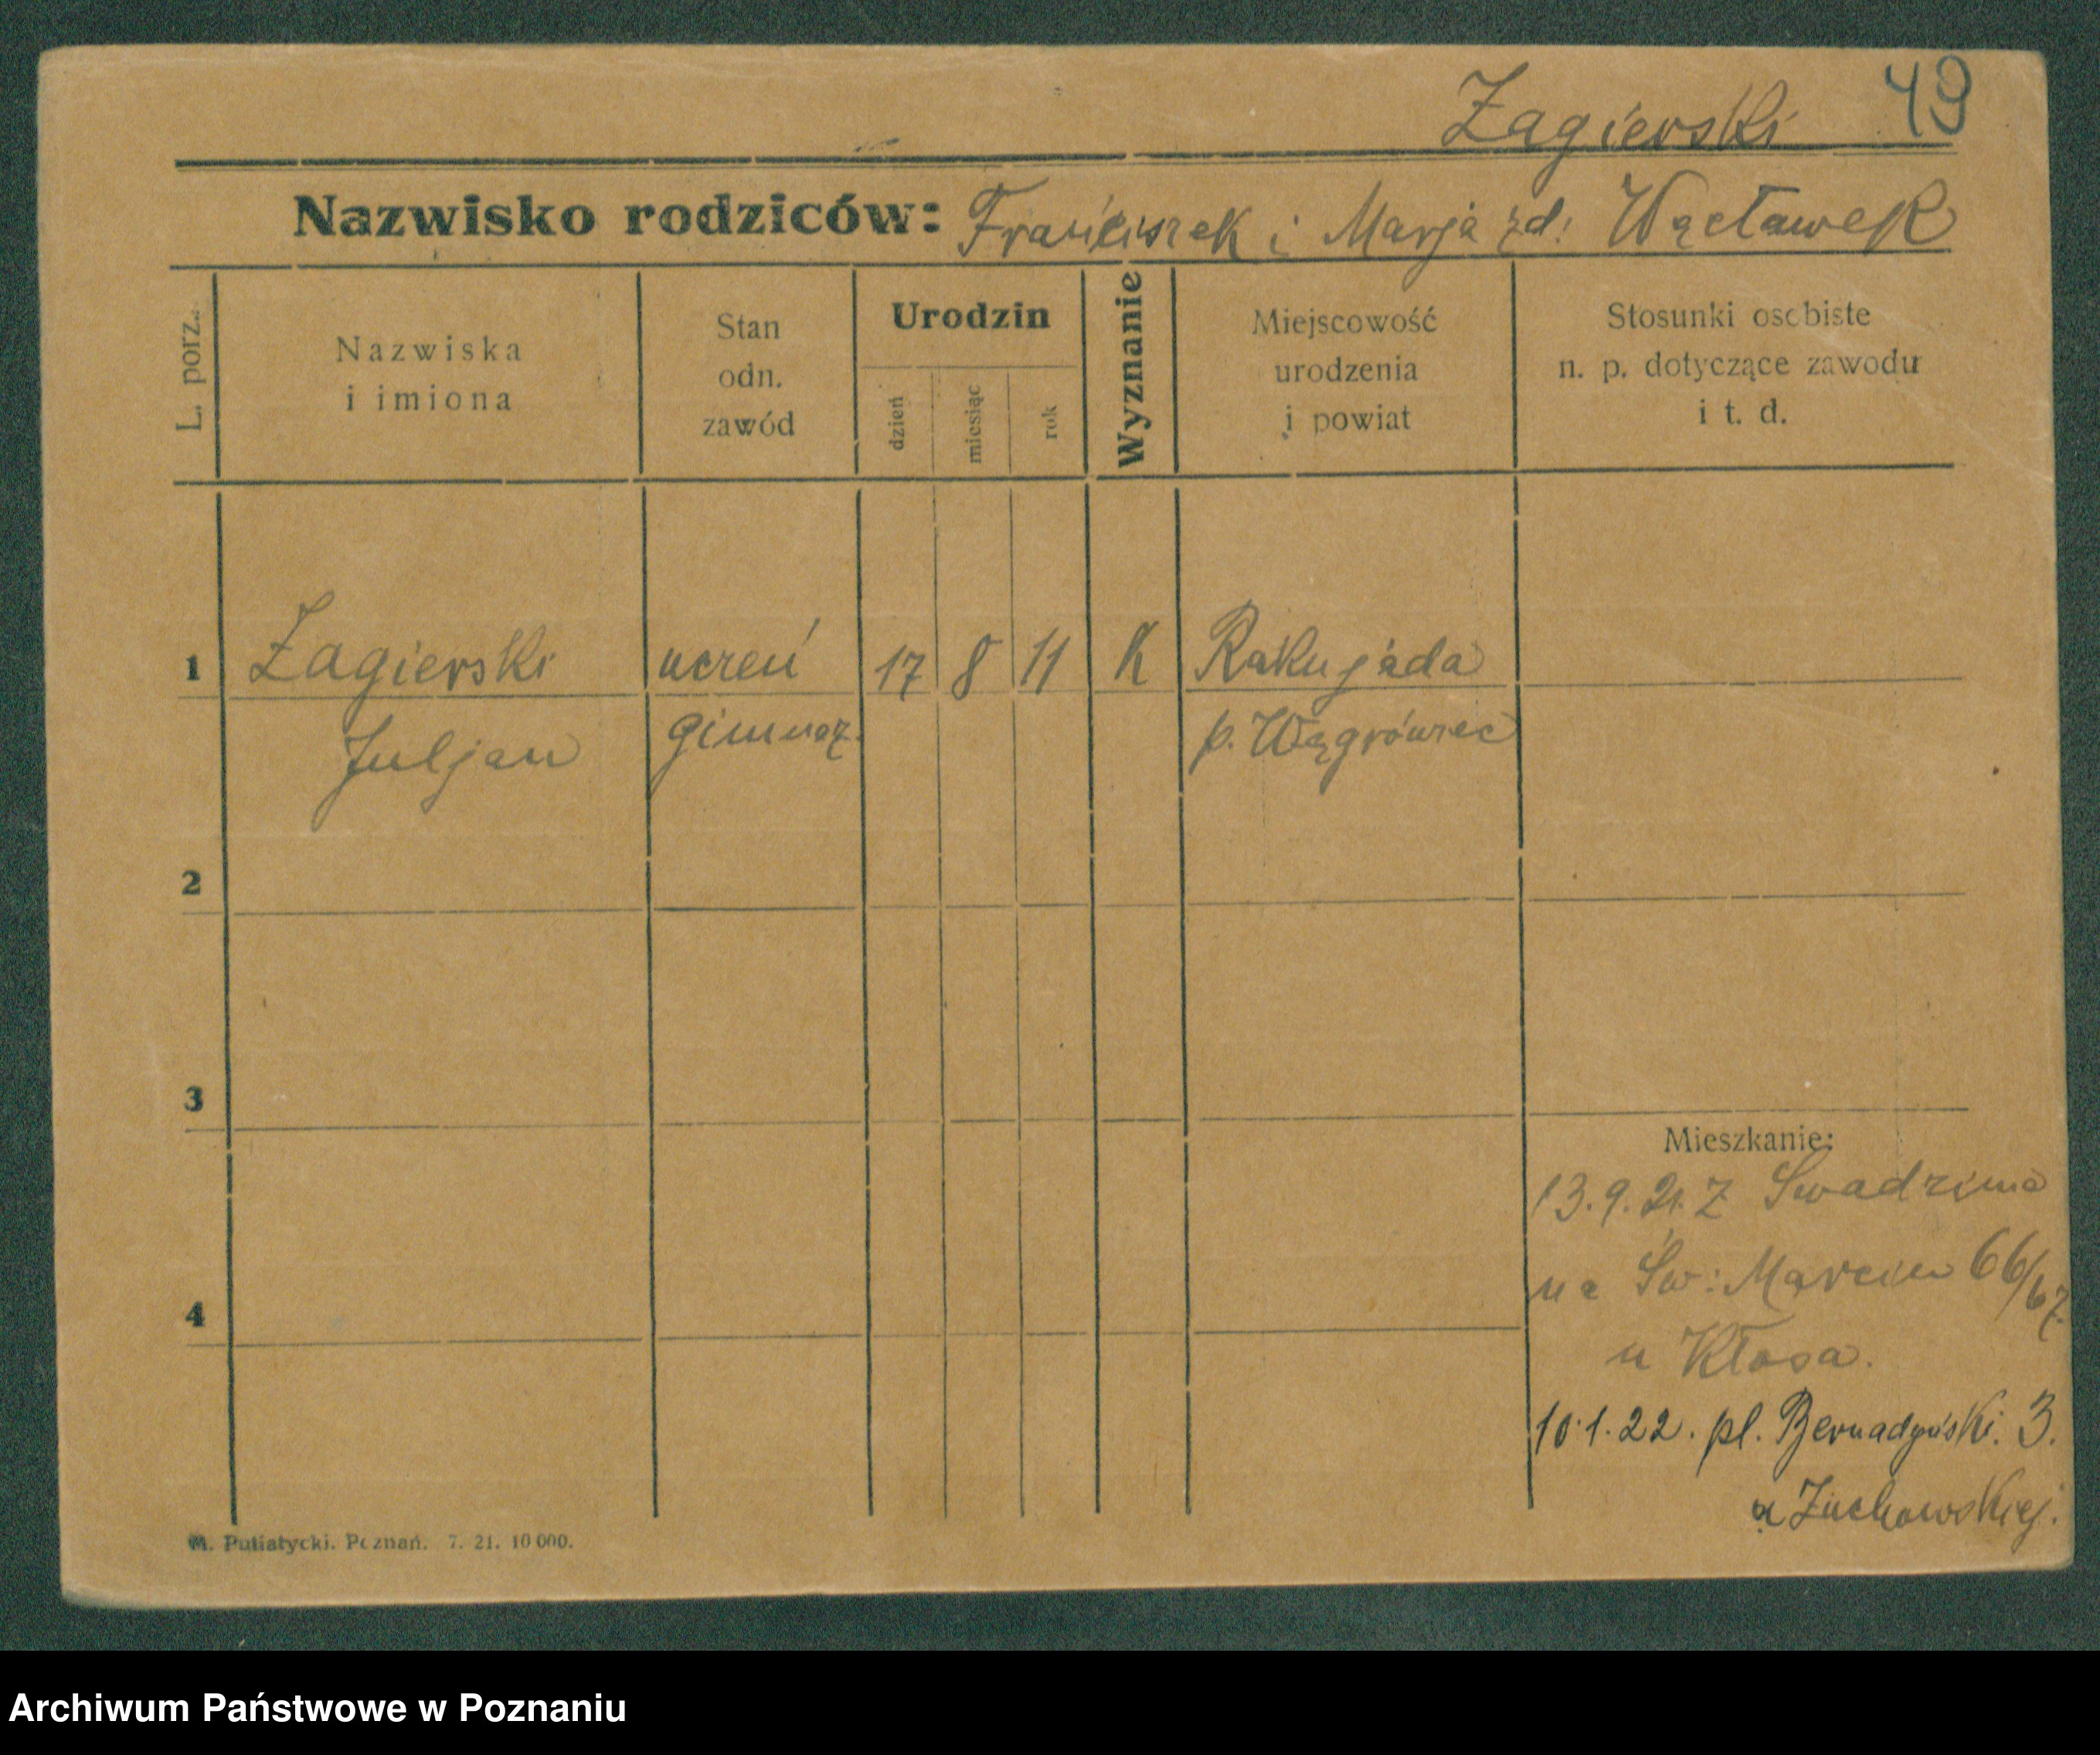 Zagierski 49
Nazwisko rodziców: Franciszek i Marja zd: Wącławek
L. porz.
Nazwiska
i imiona
Stan
odn.
zawód
Urodzin
dzień
miesiąc
rok
Wyznanie
Miejscowość
urodzenia
i powiat
Stosunki osobiste
n. p. dotyczące zawodu
i t. d.
1 Zagierski uczeń 17 8 11 K Rakujada
Juljan gimnaz. p. Wągrówiec
2
3
4
Mieszkanie:
13.9.21. z Swadzima
na Św: Marcin 66/67.
u Kłosa.
10.1.22. pl. Bernadyński. 3.
u Żuchowskiej.
M. Putiatycki. Poznań. 7. 21. 10 000.
Archiwum Państwowe w Poznaniu